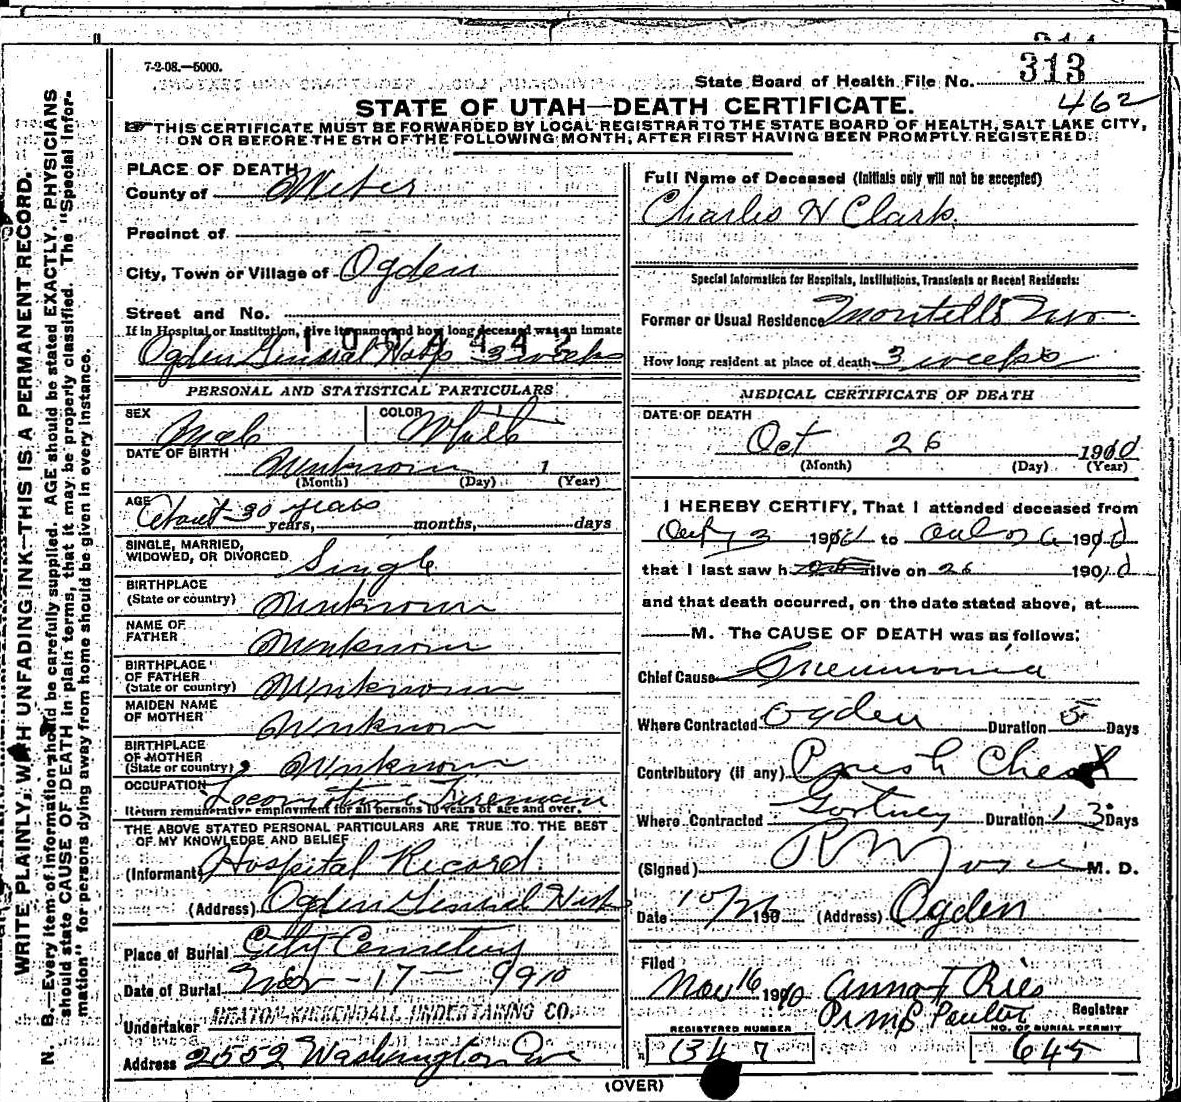 7-2-08.—5000.
State Board of Health File No. 313
462
STATE OF UTAH—DEATH CERTIFICATE.
THIS CERTIFICATE MUST BE FORWARDED BY LOCAL REGISTRAR TO THE STATE BOARD OF HEALTH, SALT LAKE CITY,
ON OR BEFORE THE 5TH OF THE FOLLOWING MONTH, AFTER FIRST HAVING BEEN PROMPTLY REGISTERED.
WRITE PLAINLY, WITH UNFADING INK—THIS IS A PERMANENT RECORD.
N. B.—Every item of information should be carefully supplied. AGE should be stated EXACTLY. PHYSICIANS
should state CAUSE OF DEATH in plain terms, that it may be properly classified. The "Special Infor-
mation" for persons dying away from home should be given in every instance.
PLACE OF DEATH
County of Weber
Precinct of
City, Town or Village of Ogden
Street and No.
If in Hospital or Institution, give its name and how long deceased was an inmate
Ogden General Hosp 3 weeks
PERSONAL AND STATISTICAL PARTICULARS
SEX
Male
COLOR
White
DATE OF BIRTH
Unknown 1
(Month) (Day) (Year)
AGE
About 30 years
years, months, days
SINGLE, MARRIED,
WIDOWED, OR DIVORCED Single
BIRTHPLACE
(State or country) Unknown
NAME OF
FATHER Unknown
BIRTHPLACE
OF FATHER
(State or country) Unknown
MAIDEN NAME
OF MOTHER Unknown
BIRTHPLACE
OF MOTHER
(State or country) Unknown
OCCUPATION
Locomotive Fireman
Return remunerative employment for all persons 10 years of age and over.
THE ABOVE STATED PERSONAL PARTICULARS ARE TRUE TO THE BEST
OF MY KNOWLEDGE AND BELIEF
(Informant) Hospital Record
(Address) Ogden General Hosp
Place of Burial City Cemetery
Date of Burial Nov - 17 - 1910
Undertaker UNDERTAKING CO.
Address 2552 Washington Ave
Full Name of Deceased (Initials only will not be accepted)
Charles H Clark
Special Information for Hospitals, Institutions, Transients or Recent Residents:
Former or Usual Residence Montello Nev
How long resident at place of death 3 weeks
MEDICAL CERTIFICATE OF DEATH
DATE OF DEATH
Oct 26 1910
(Month) (Day) (Year)
I HEREBY CERTIFY, That I attended deceased from
190 to 190
that I last saw h alive on 26 1910
and that death occurred, on the date stated above, at
M. The CAUSE OF DEATH was as follows:
Chief Cause Pneumonia
Where Contracted Ogden Duration 5 Days
Contributory (if any) Chest
Where Contracted Duration 13 Days
(Signed) M. D.
Date 10/26 190 (Address) Ogden
Filed
Nov 16 1910 Anna F Ries
Registrar
REGISTERED NUMBER
1347
NO. OF BURIAL PERMIT
645
(OVER)